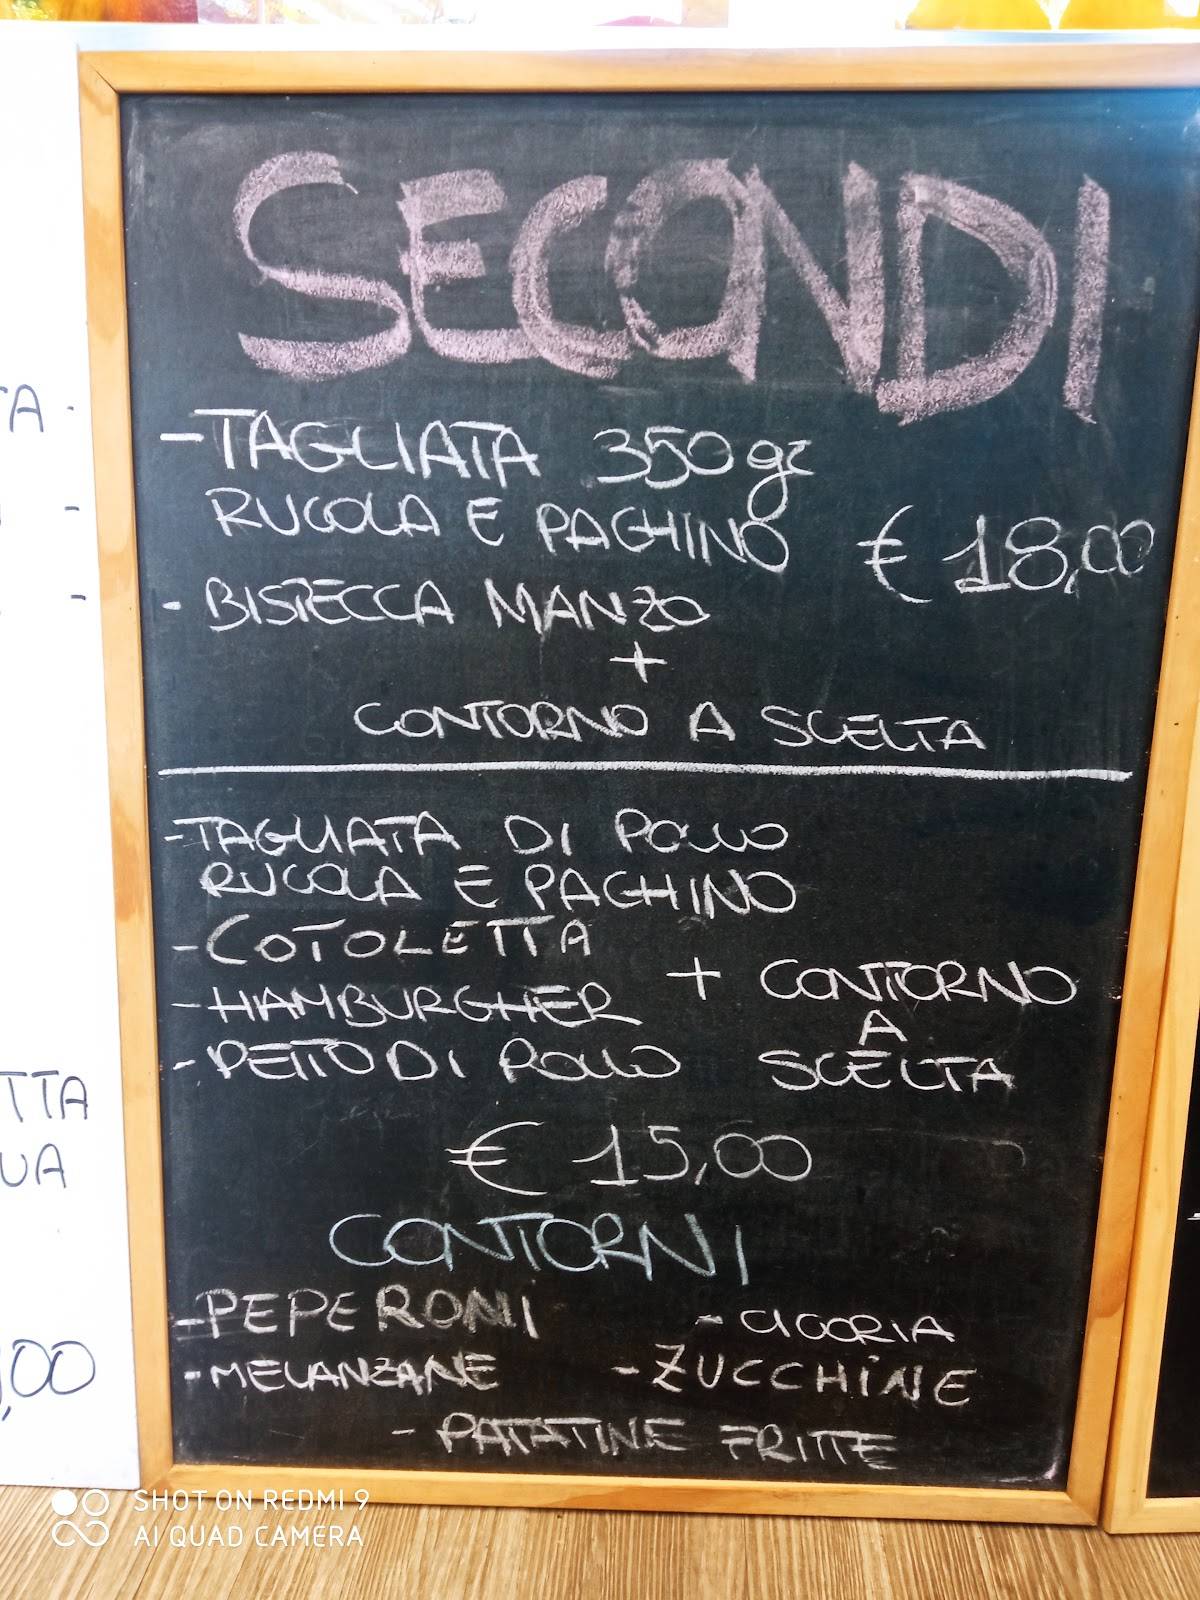 TA -
-
-
TTA
UA
,00
SECONDI
- TAGLIATA 350 gr
RUCOLA E PACHINO € 18,00
- BISTECCA MANZO
+
CONTORNO A SCELTA
- TAGLIATA DI POLLO
RUCOLA E PACHINO
- COTOLETTA
- HAMBURGHER
- PETTO DI POLLO
+ CONTORNO
A
SCELTA
€ 15,00
CONTORNI
- PEPERONI - CICORIA
- MELANZANE - ZUCCHINE
- PATATINE FRITTE
SHOT ON REDMI 9
AI QUAD CAMERA